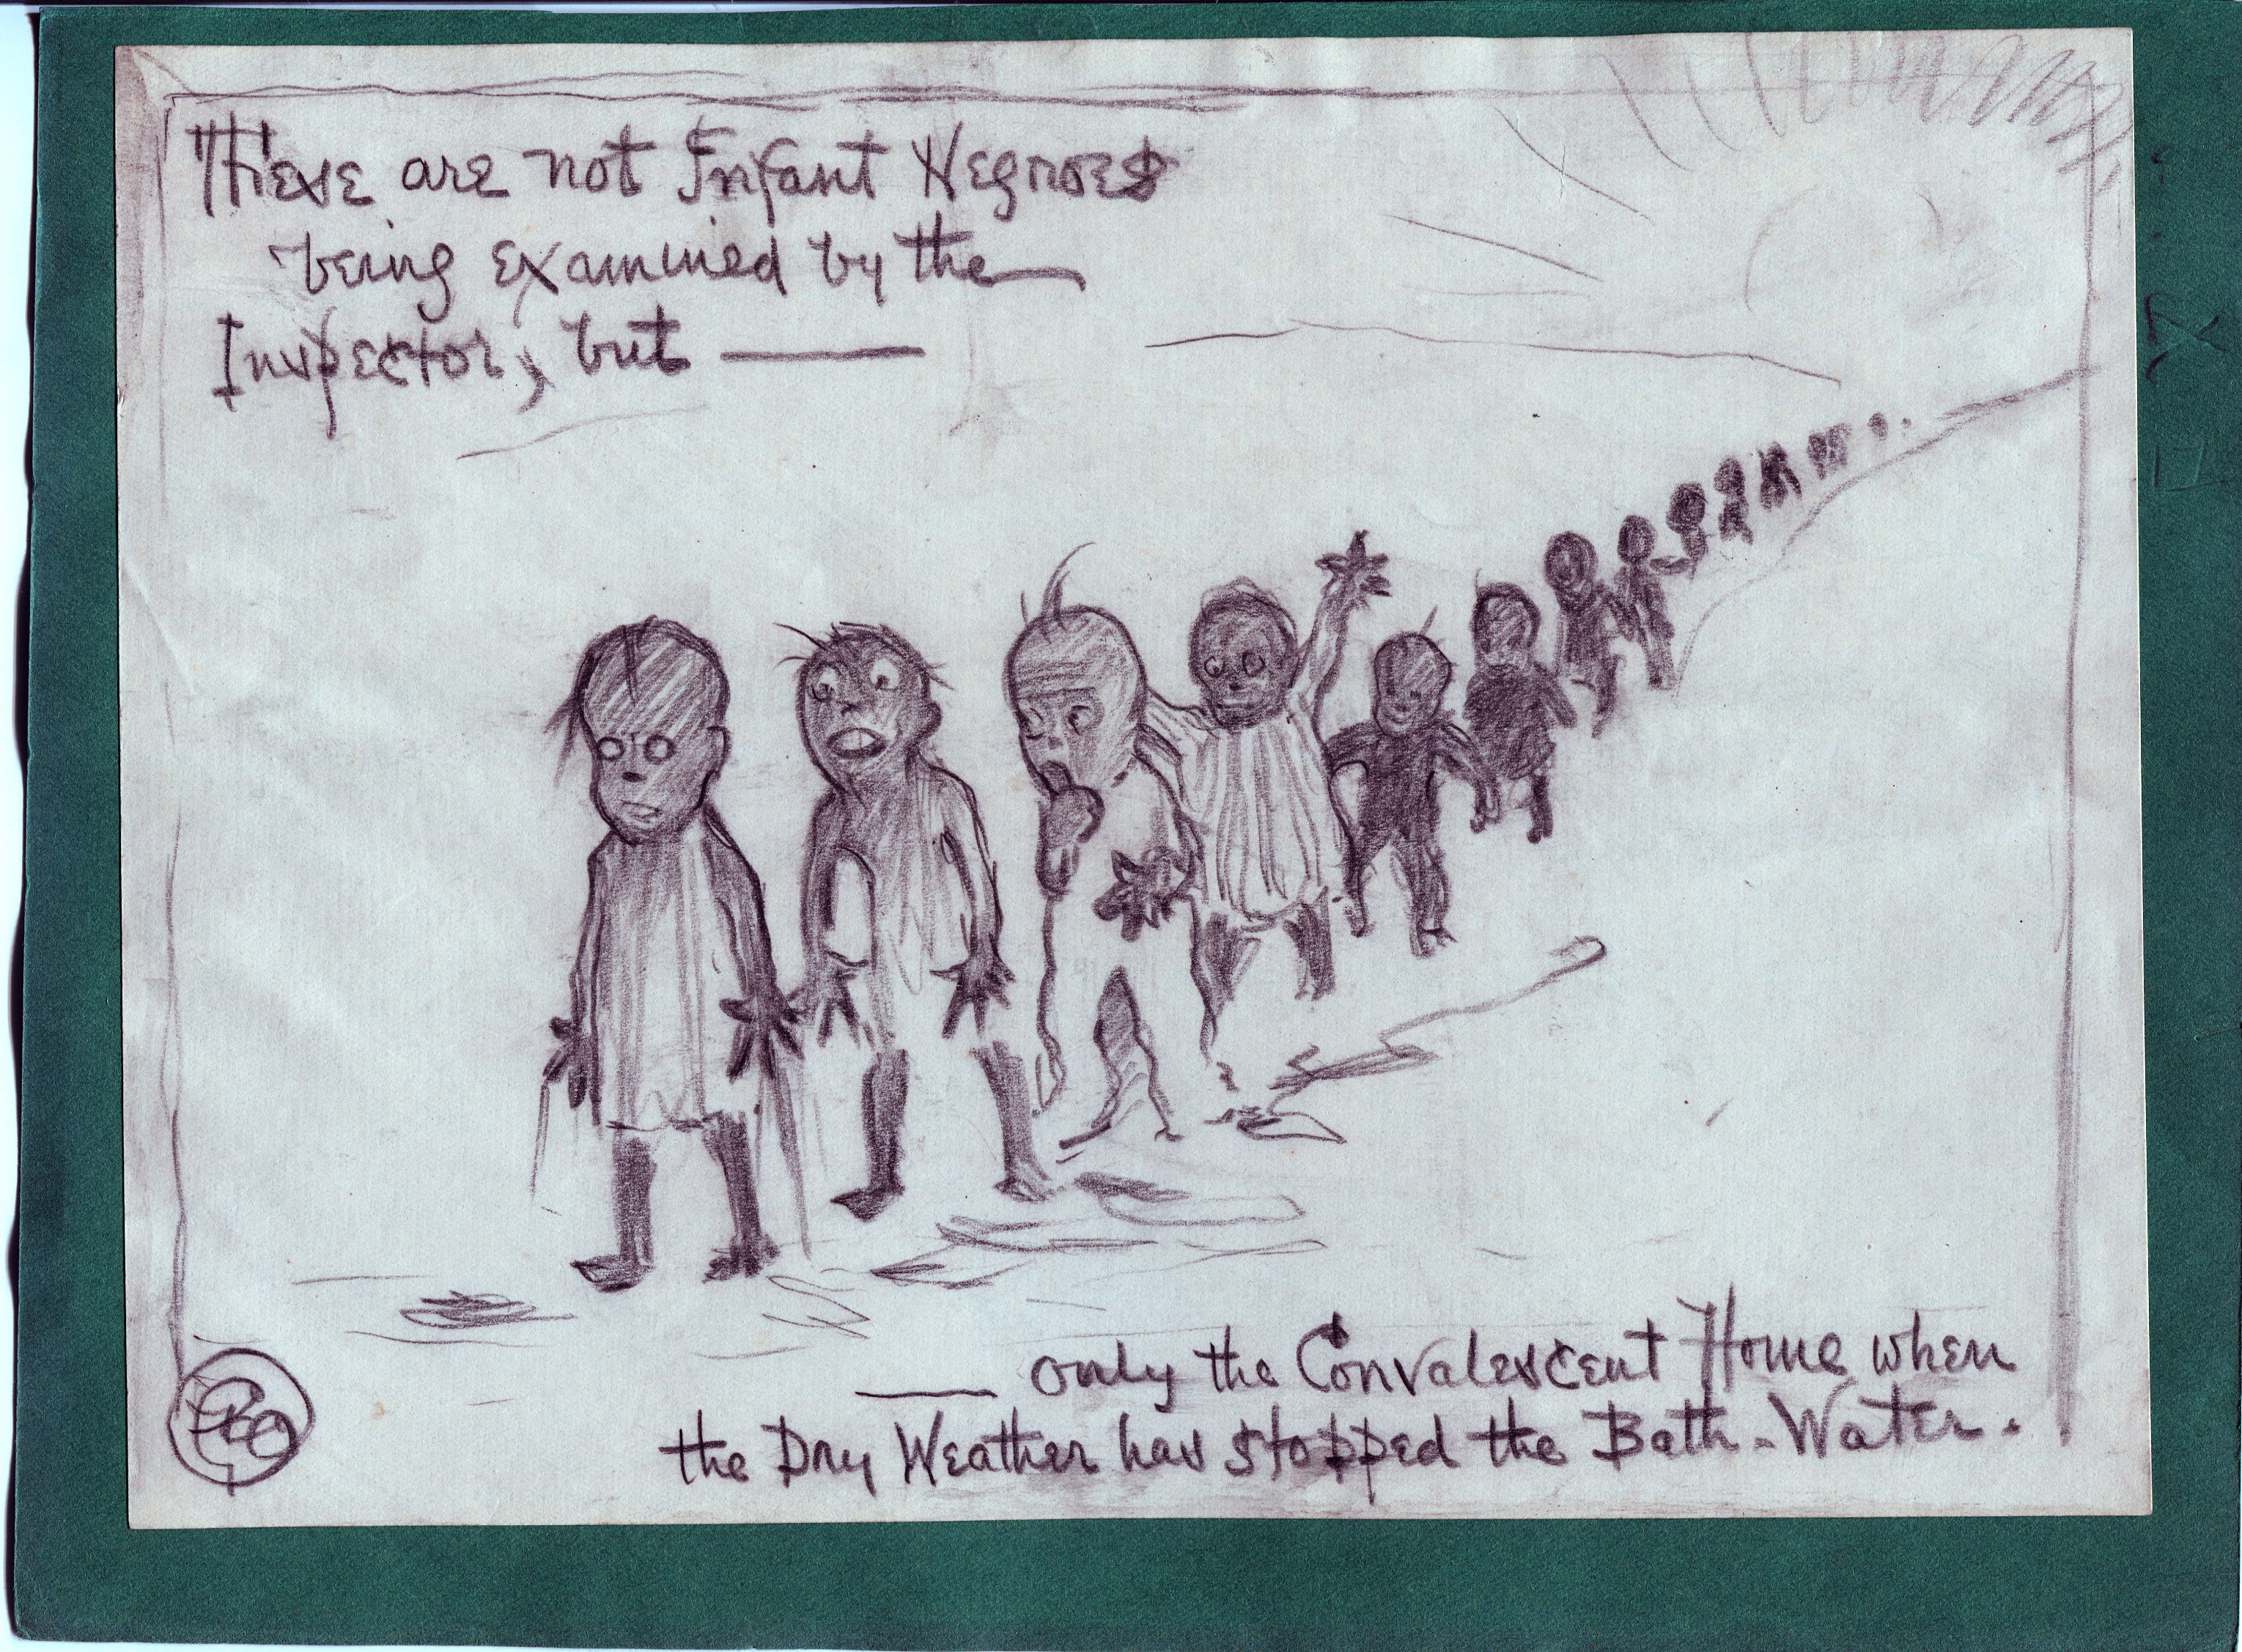 These are not Infant Negroes
being examined by the
Inspector, but ———
——— only the Convalescent Home when
the Dry Weather has stopped the Bath-Water.